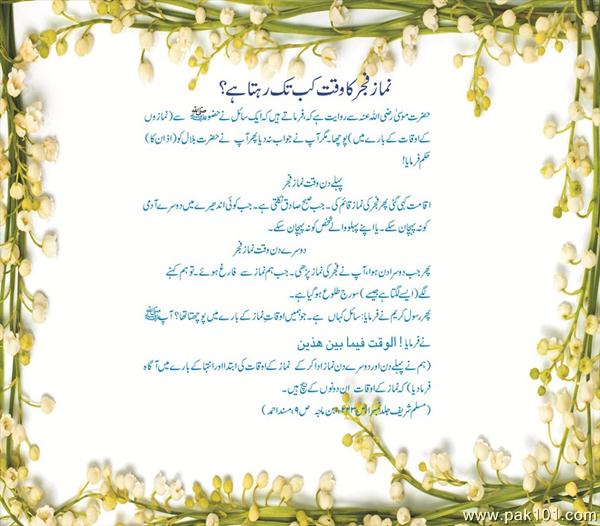 نماز فجر کا وقت کب تک رہتا ہے؟
حضرت موسیٰ رضی اللہ عنہ سے روایت ہے کہ، فرماتے ہیں کہ ایک سائل نے حضور ﷺ سے (نمازوں
کے اوقات کے بارے میں) پوچھا۔ مگر آپ نے جواب نہ دیا پھر آپ نے حضرت بلال کو (اذان کا)
حکم فرمایا!
پہلے دن وقت نماز فجر
اقامت کہی گئی پھر فجر کی نماز قائم کی۔ جب صبح صادق نکلتی ہے۔ جب کوئی اندھیرے میں دوسرے آدمی
کو نہ پہچان سکے۔ یا اپنے پہلو والے شخص کو نہ پہچان سکے۔
دوسرے دن وقت نماز فجر
پھر جب دوسرا دن ہوا، آپ نے فجر کی نماز پڑھی۔ جب ہم نماز سے فارغ ہوئے۔ تو ہم کہنے
لگے (ایسے لگتا ہے جیسے) سورج طلوع ہو گیا ہے۔
پھر رسول کریم نے فرمایا: سائل کہاں ہے۔ جو ہمیں اوقات نماز کے بارے میں پوچھتا تھا؟ آپ ﷺ
نے فرمایا! الوقت فيما بين هذين
(ہم نے پہلے دن اور دوسرے دن نماز ادا کر کے نماز کے اوقات کی ابتدا اور انتہا کے بارے میں آگاہ
فرما دیا) کہ نماز کے اوقات ان دونوں کے بیچ ہیں۔
(مسلم شریف جلد نمبر ا ص ۲۲۳، ابن ماجہ ص ۹، مسند احمد)
www.pak101.com